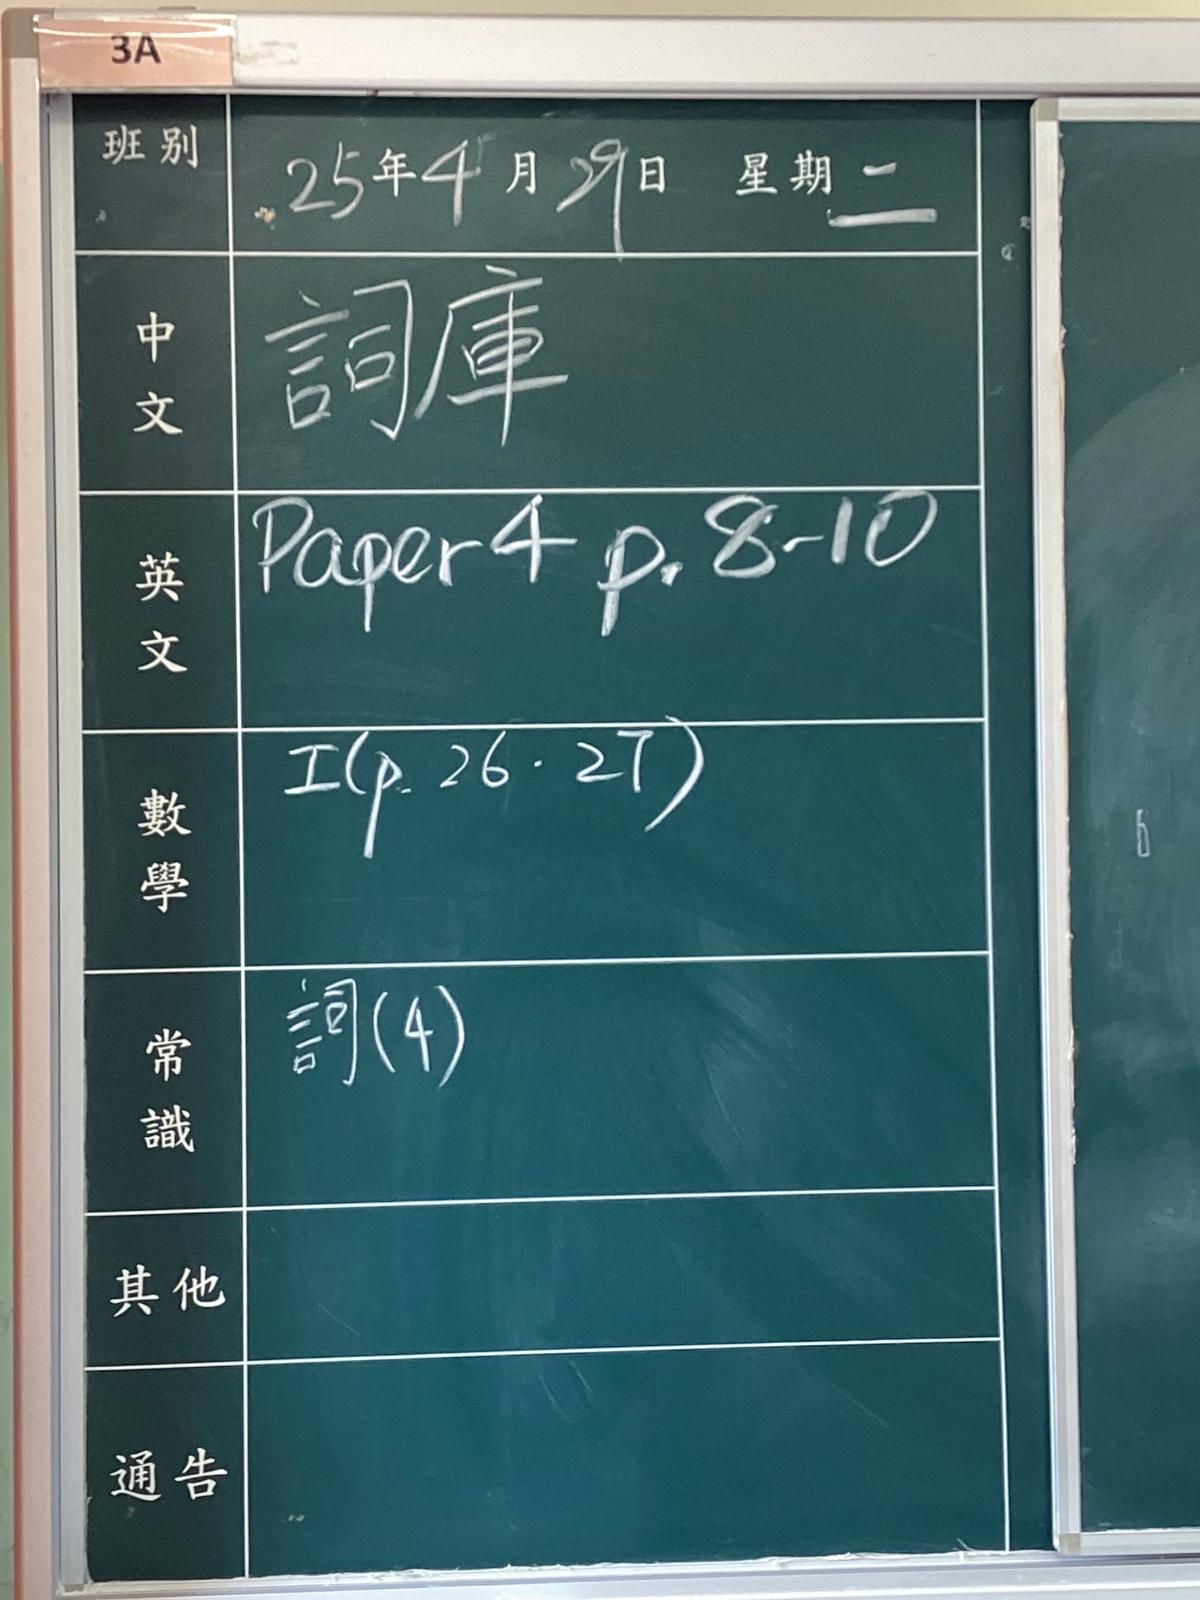 3A
班別 25年4月29日 星期二
中文 詞庫
英文 Paper 4 p. 8-10
數學 I(p. 26 · 27)
常識 詞(4)
其他
通告